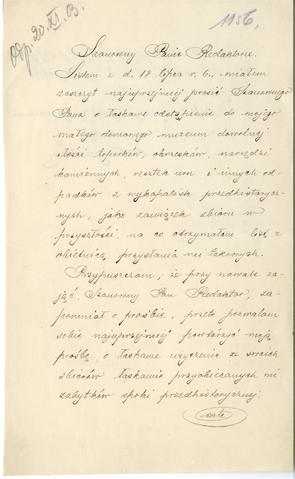 Odp. 20.XI.03.
1156.
Szanowny Panie Redaktorze.
Listem z d. 18 lipca r. b., miałem
zaszczyt najuprzejmiej prosić Szanownego
Pana o łaskawe odstąpienie do mojego
małego domowego muzeum dowolnej
ilości toporków, okrzesków, narzędzi
kamiennych, resztek urn i innych od-
padków z wykopalisk przedhistorycz-
nych, jako zawiązek zbioru w
przyszłości, na co otrzymałem list z
obietnicą przysłania mi takowych.
Przypuszczam, że przy nawale za-
jęć Szanowny Pan Redaktor, za-
pomniał o prośbie, przeto pozwalam
sobie najuprzejmiej powtórzyć moją
prośbę, o łaskawe użyczenie ze swoich
zbiorów łaskawie przyobiecanych mi
zabytków epoki przedhistorycznej.
verte